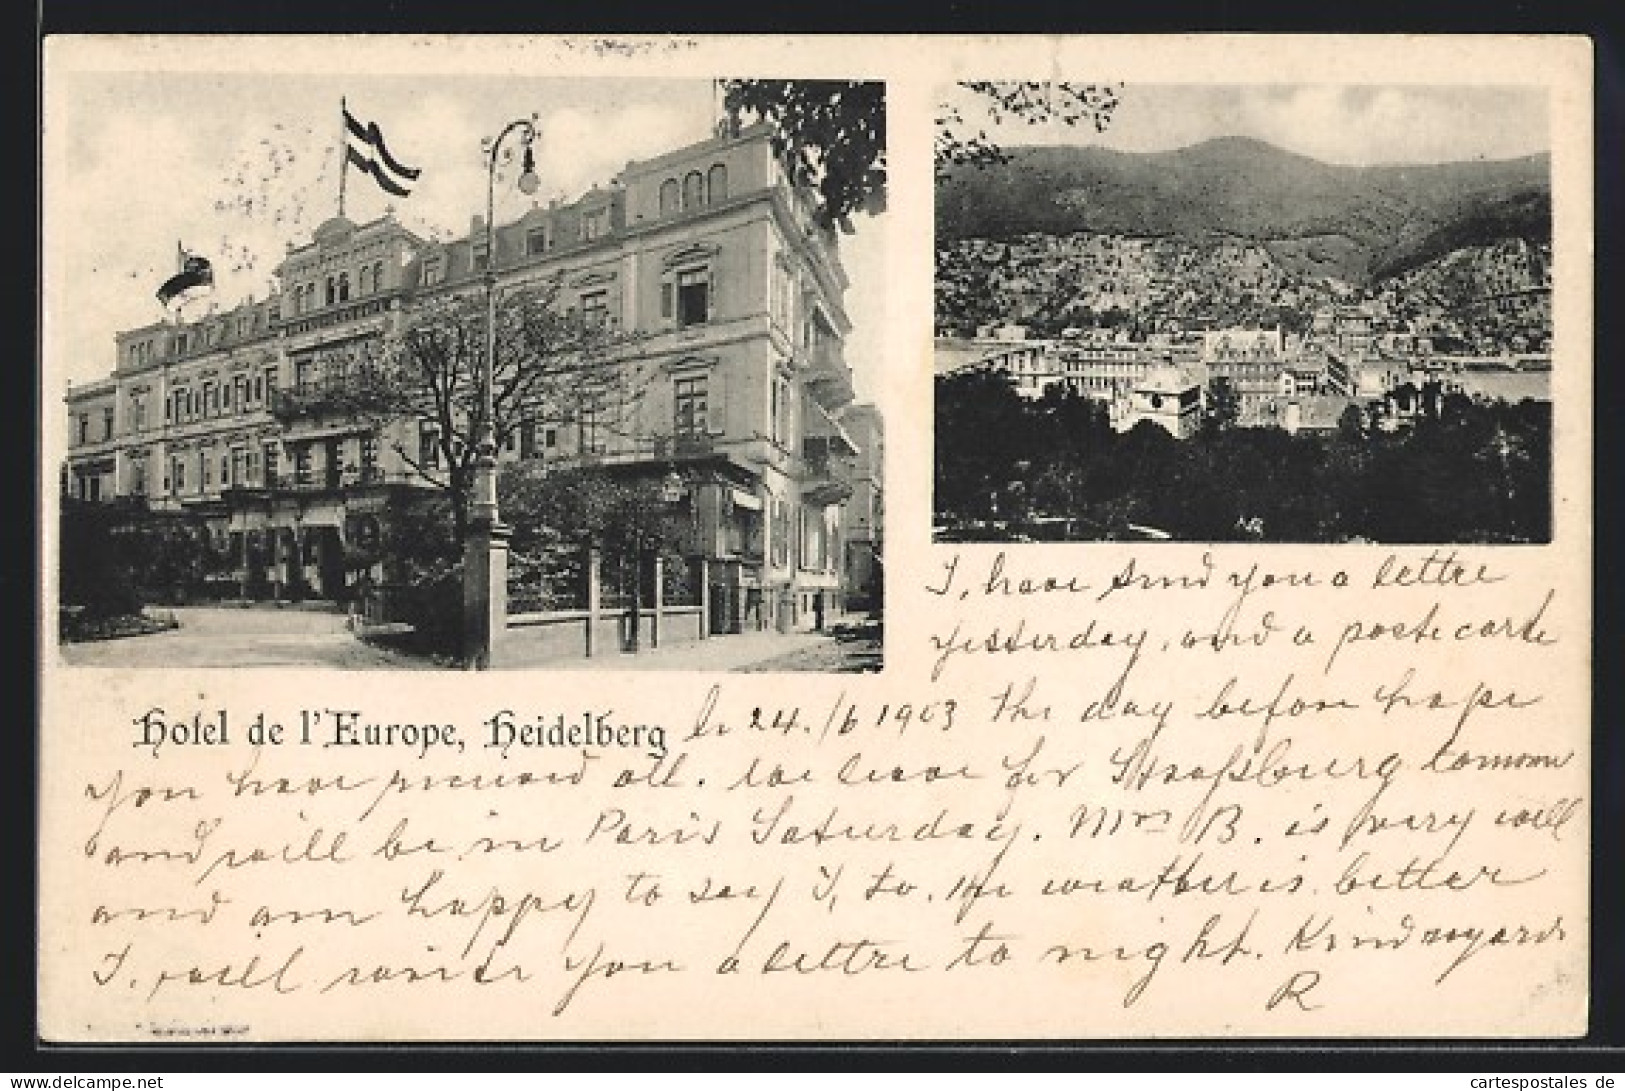 I, have send you a lettre
yesterday, and a postecarte
Hotel de l'Europe, Heidelberg le 24./6 1903 the day before hope
you have recieved all. We leave for Straßburg tomorrow
and will be in Paris Saturday. Mrs B. is very well
and am happy to say I, to. the weather is better
I, will write you a lettre to night. Kind regards
R
cartespostales de